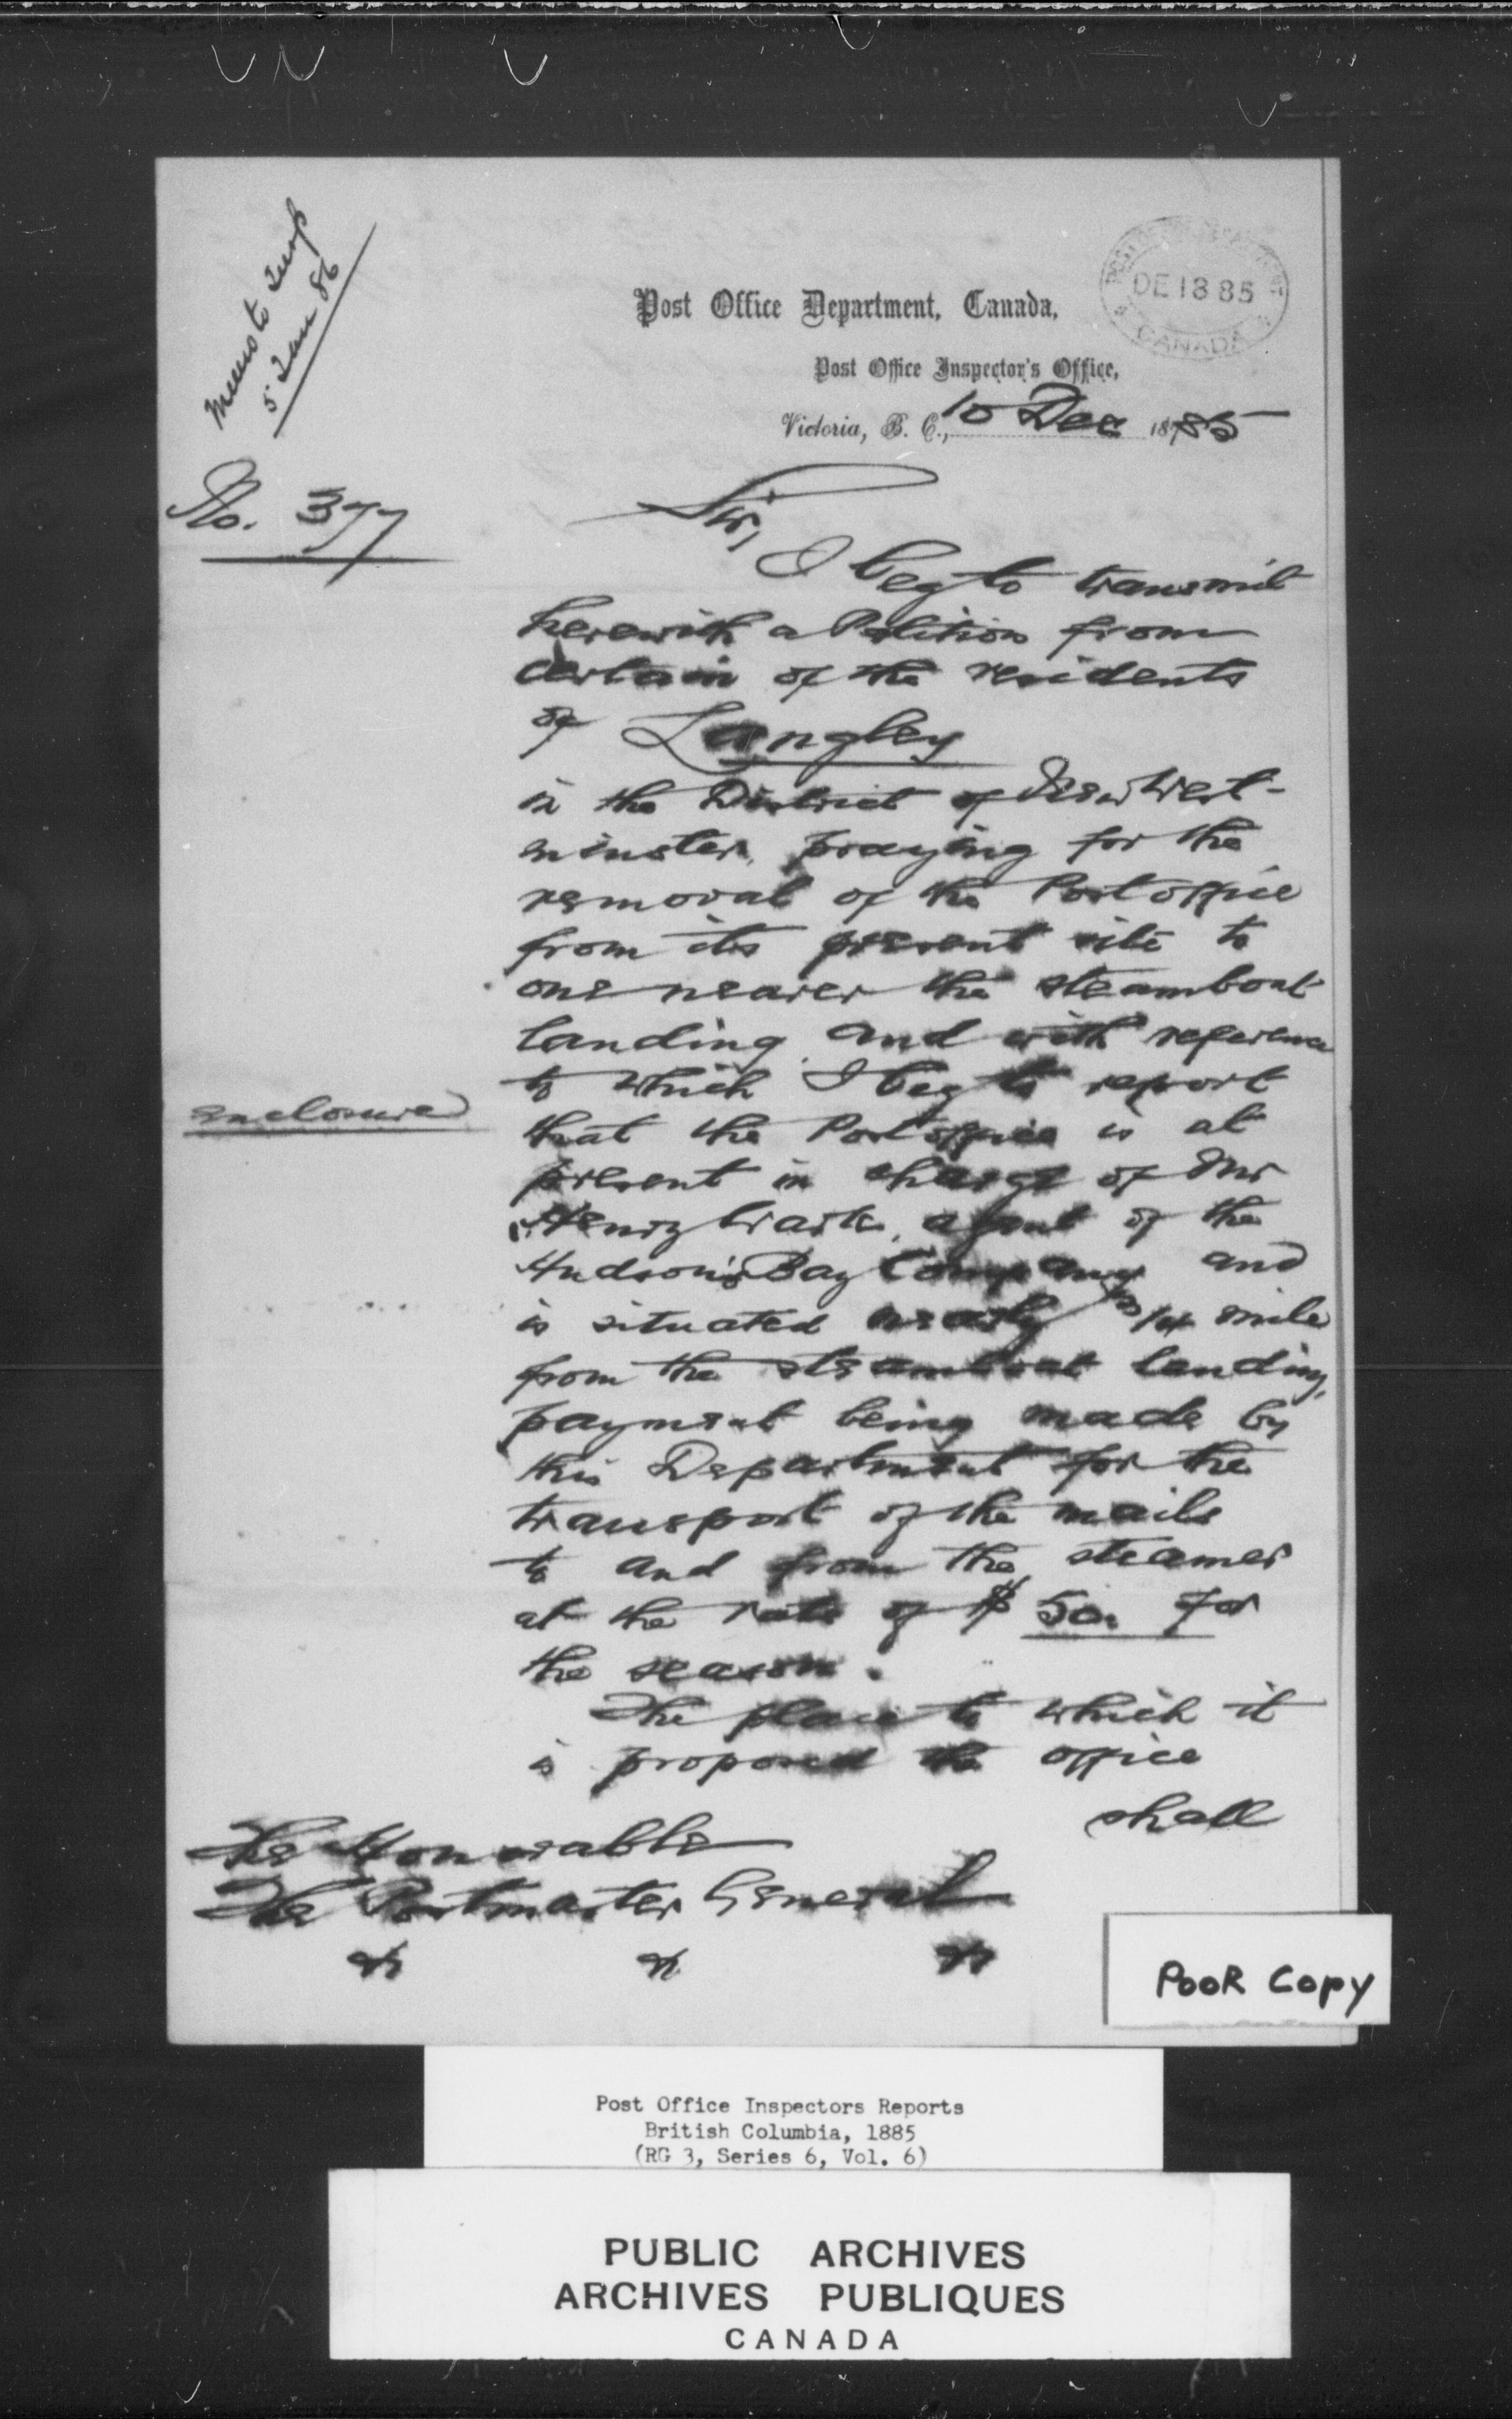 Memo to Insp
5 Jan 86
POST OFFICE DEPARTMENT
DE 18 85
CANADA
Post Office Department, Canada,
Post Office Inspector's Office,
Victoria, B. C., 10 Dec 1885
No. 377
Sir,
I beg to transmit
herewith a Petition from
certain of the residents
of Langley
in the District of New West-
minster, praying for the
removal of the Post office
from its present site to
one nearer the steamboat
landing and with reference
to which I beg to report
enclosure
that the Post office is at
present in charge of Mr
Henry Wark, agent of the
Hudson's Bay Company and
is situated nearly 3/4 mile
from the steamboat landing,
payment being made by
this Department for the
transport of the mails
to and from the steamer
at the rate of $50. for
the season.
The place to which it
is proposed the office
shall
The Honorable
The Postmaster General
POOR COPY
Post Office Inspectors Reports
British Columbia, 1885
(RG 3, Series 6, Vol. 6)
PUBLIC ARCHIVES
ARCHIVES PUBLIQUES
CANADA